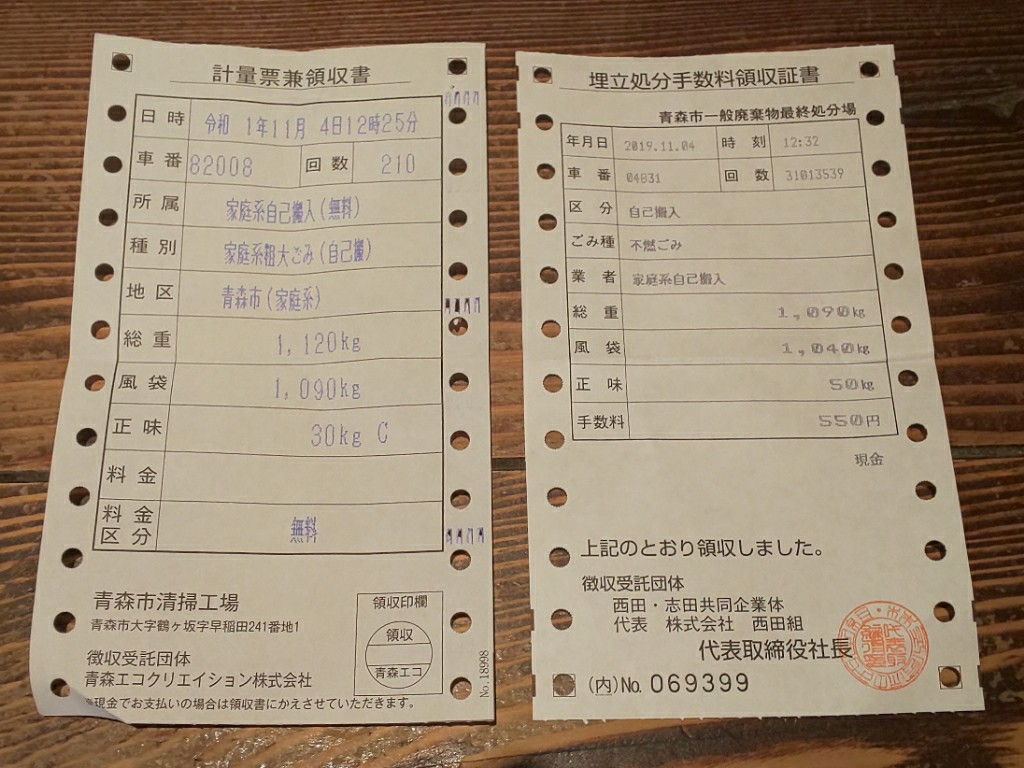 計量票兼領収書
日時 令和 1年11月 4日12時25分
車番 82008 回数 210
所属 家庭系自己搬入(無料)
種別 家庭系粗大ごみ(自己搬)
地区 青森市(家庭系)
総重 1,120kg
風袋 1,090kg
正味 30kg C
料金
料金区分 無料
青森市清掃工場
青森市大字鶴ヶ坂字早稲田241番地1
徴収受託団体
青森エコクリエイション株式会社
※現金でお支払いの場合は領収書にかえさせていただきます。
領収印欄
領収
青森エコ
No.18998
埋立処分手数料領収証書
青森市一般廃棄物最終処分場
年月日 2019.11.04 時刻 12:32
車番 04831 回数 31013539
区分 自己搬入
ごみ種 不燃ごみ
業者 家庭系自己搬入
総重 1,090kg
風袋 1,040kg
正味 50kg
手数料 550円
現金
上記のとおり領収しました。
徴収受託団体
西田・志田共同企業体
代表 株式会社 西田組
代表取締役社長
(内)No. 069399